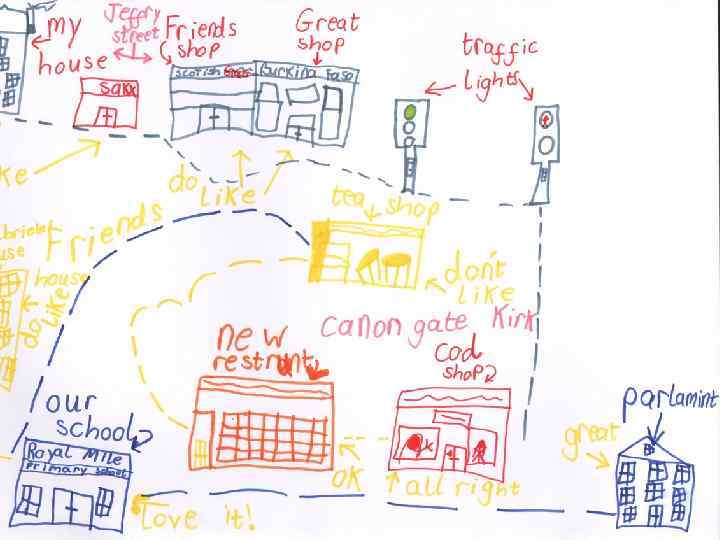 my
house
Jeffry
street
Friends
shop
Great
shop
traffic
lights
Burkina Faso
do
like
tea shop
don't
like
Friends
house
do
like
canon gate Kirk
new
restrunt
cod
shop
parlamint
great
our
school
Royal Mile
Primary school
Love it!
ok
all right